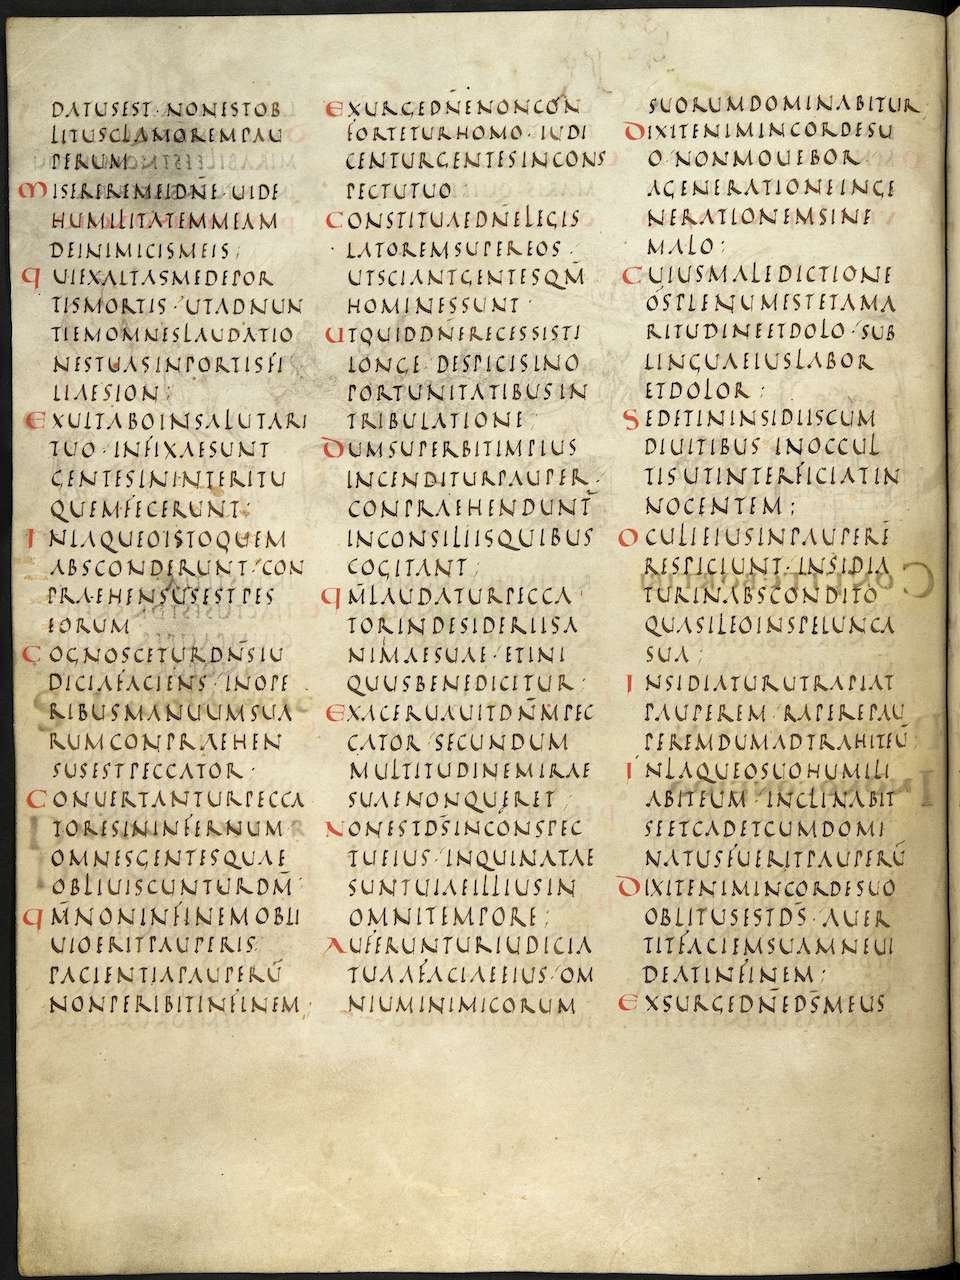 DATUSEST · NONESTOB
LITUSCLAMOREMPAU
PERUM
MISEREREMEIDN̄E · UIDE
HUMILITATEMMEAM
DEINIMICISMEIS;
QUIEXALTASMEDEPOR
TISMORTIS · UTADNUN
TIEMOMNESLAUDATIO
NESTUASINPORTISFI
LIAESION;
EXULTABOINSALUTARI
TUO · INFIXAESUNT
GENTESININTERITU
QUEMFECERUNT;
INLAQUEOISTOQUEM
ABSCONDERUNT · CON
PRAEHENSUSESTPES
EORUM
COGNOSCETURDN̄SIU
DICIAFACIENS · INOPE
RIBUSMANUUMSUA
RUMCONPRAEHEN
SUSESTPECCATOR ·
CONUERTANTURPECCA
TORESININFERNUM
OMNESGENTESQUAE
OBLIUISCUNTURDM̄
QM̄NONINFINEMOBLI
UIOERITPAUPERIS
PACIENTIAPAUPERŪ
NONPERIBITINFINEM;
EXURGEDN̄ENONCON
FORTETURHOMO · IUDI
CENTURGENTESINCONS
PECTUTUO
CONSTITUAEDN̄ELEGIS
LATOREMSUPEREOS ·
UTSCIANTGENTESQM̄
HOMINESSUNT ·
UTQUIDDN̄ERECESSISTI
LONGE · DESPICISINO
PORTUNITATIBUSIN
TRIBULATIONE;
DUMSUPERBITIMPIUS
INCENDITURPAUPER ·
CONPRAEHENDUNT̄
INCONSILIISQUIBUS
COGITANT;
QM̄LAUDATURPECCA
TORINDESIDERIISA
NIMAESUAE · ETINI
QUUSBENEDICITUR ·
EXACERUAUITDN̄MPEC
CATOR · SECUNDUM
MULTITUDINEMIRAE
SUAENONQUERET
NONESTDS̄INCONSPEC
TUEIUS · INQUINATAE
SUNTUIAEILLIUSIN
OMNITEMPORE;
AUFERUNTURIUDICIA
TUAAFACIAEEIUS · OM
NIUMINIMICORUM
SUORUMDOMINABITUR
DIXITENIMINCORDESU
O · NONMOUEBOR
AGENERATIONEINGE
NERATIONEMSINE
MALO;
CUIUSMALEDICTIONE
OSPLENUMESTETAMA
RITUDINEETDOLO · SUB
LINGUAEIUSLABOR
ETDOLOR;
SEDETININSIDIISCUM
DIUITIBUS INOCCUL
TISUTINTERFICIATIN
NOCENTEM;
OCULIEIUSINPAUPERĒ
RESPICIUNT · INSIDIA
TURINABSCONDITO
QUASILEOINSPELUNCA
SUA;
INSIDIATURUTRAPIAT
PAUPEREM · RAPEREPAU
PEREMDUMADTRAHITEŪ
INLAQUEOSUOHUMILI
ABITEUM · INCLINABIT
SEETCADETCUMDOMI
NATUSFUERITPAUPERŪ
DIXITENIMINCORDESUO
OBLITUSESTDS̄ · AUER
TITFACIEMSUAMNEUI
DEATINFINEM;
EXSURGEDN̄EDS̄MEUS